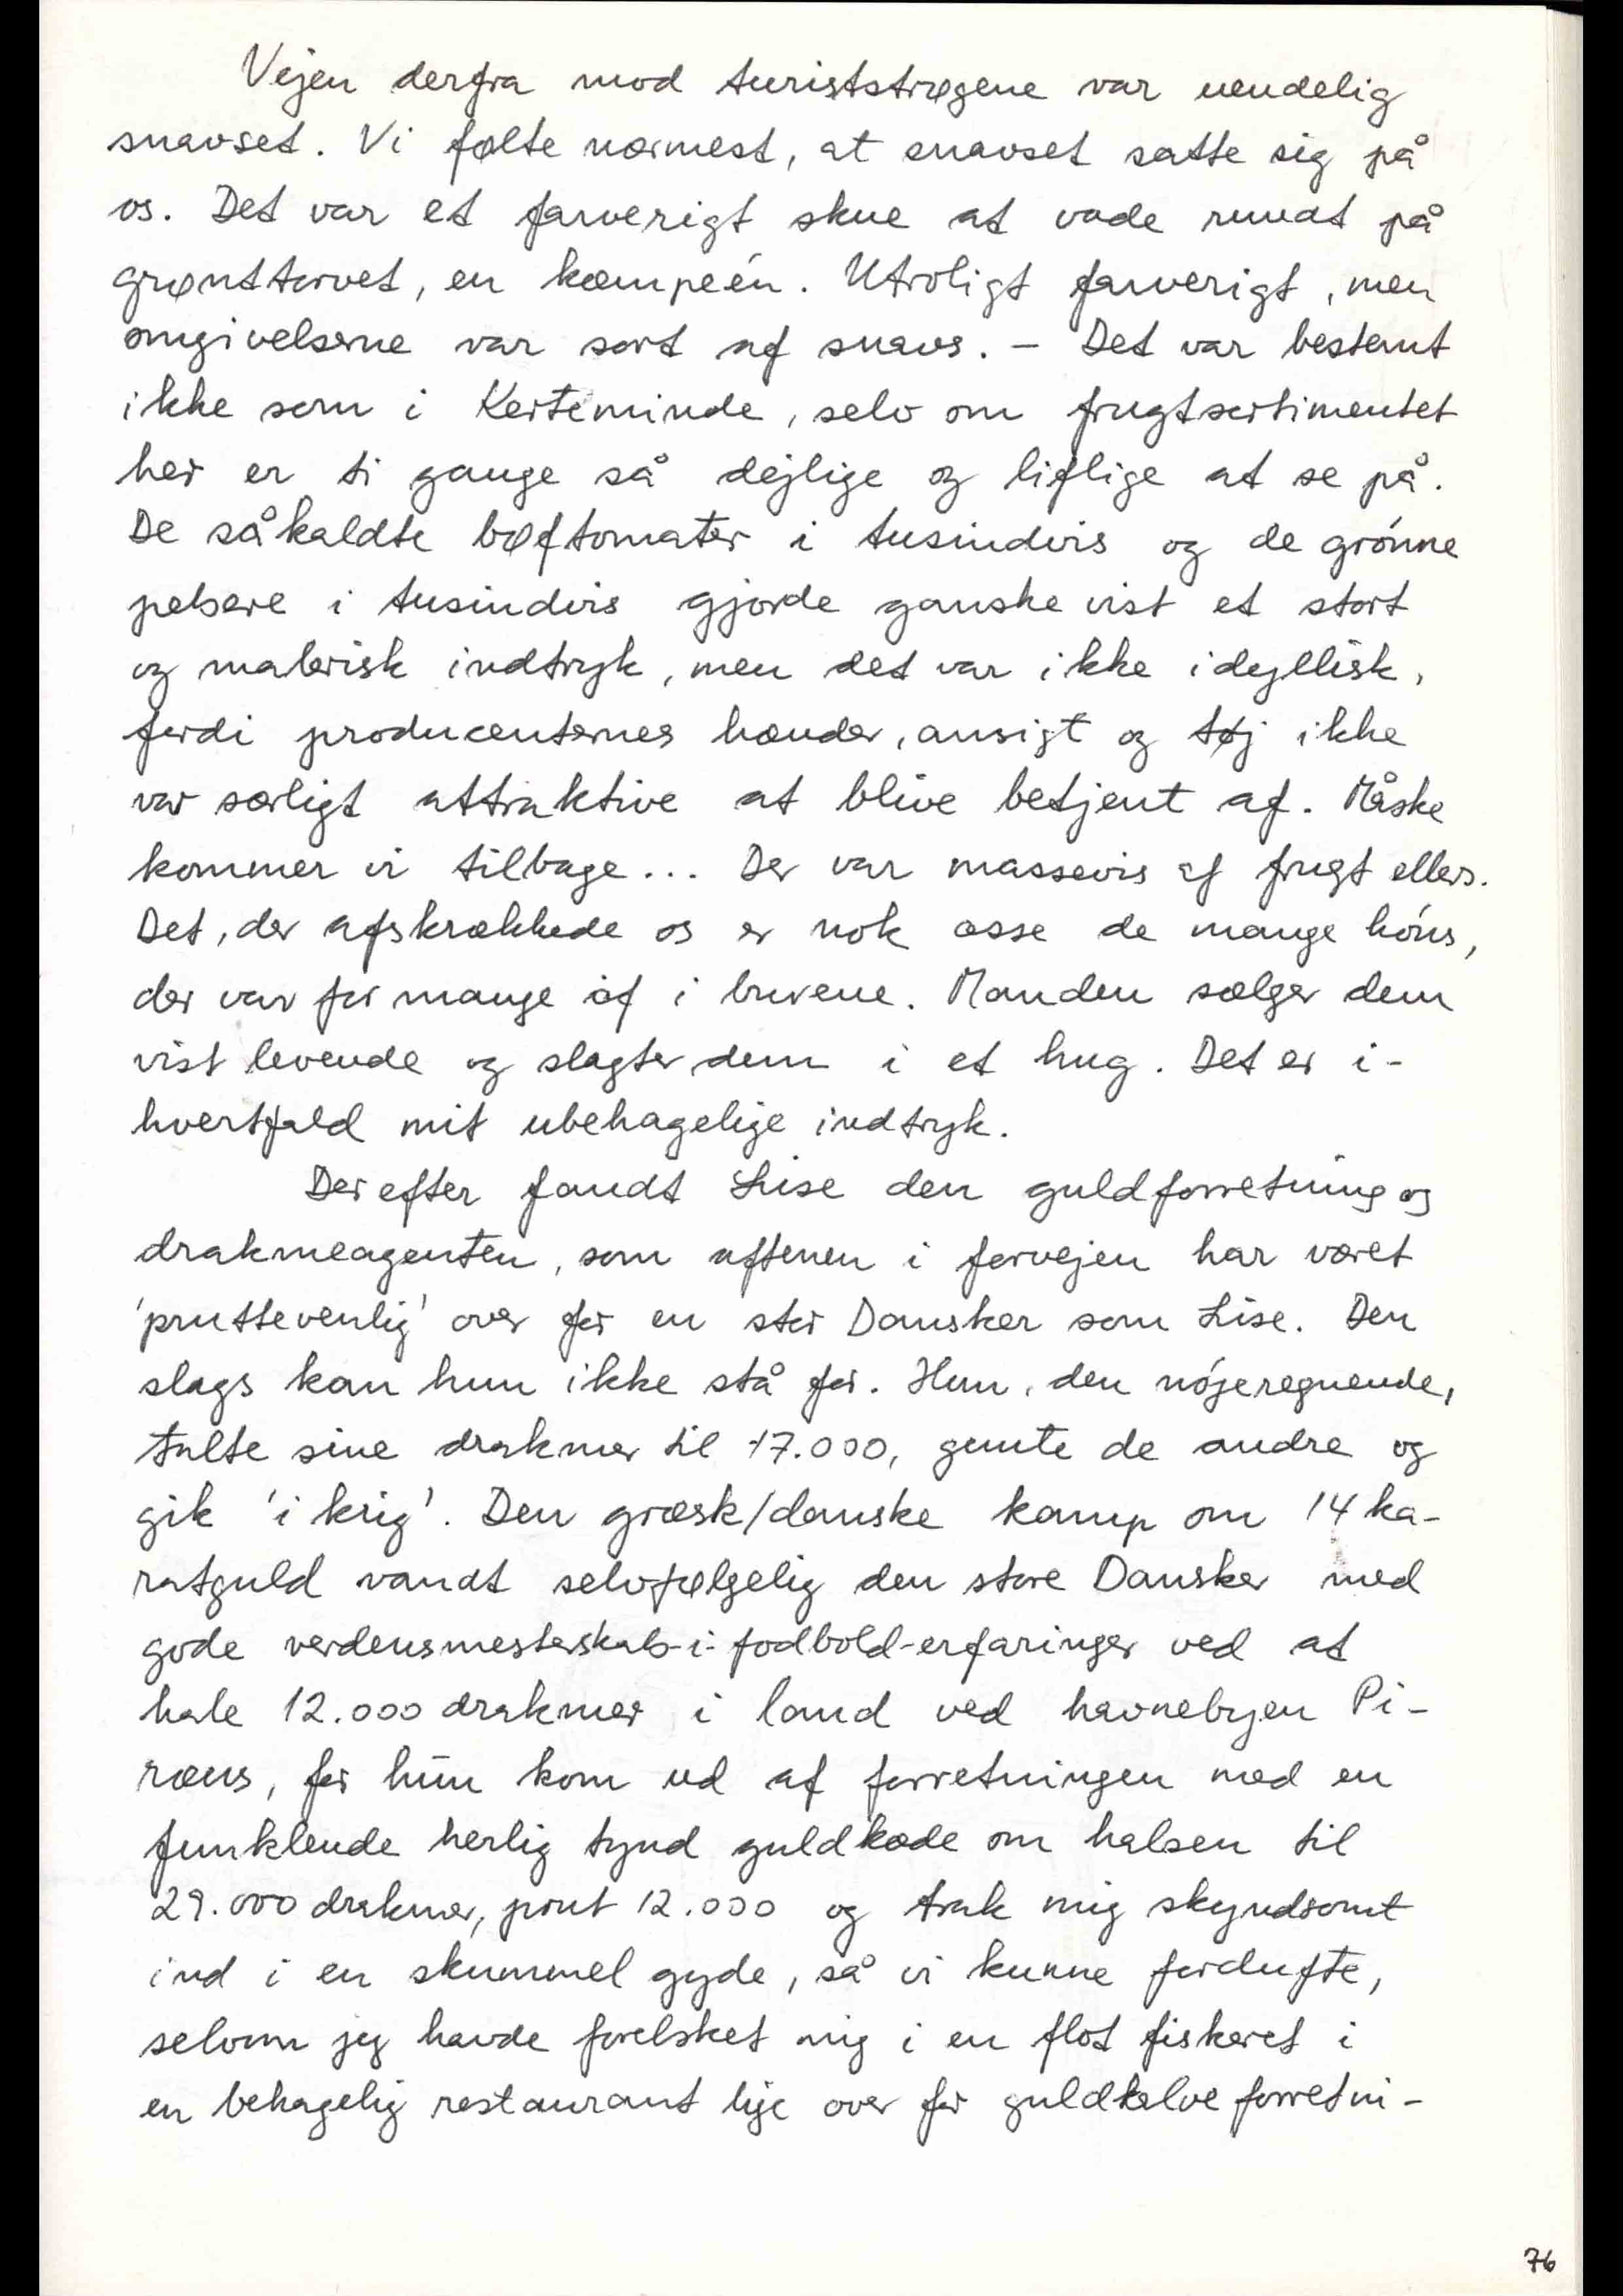 Vejen derfra mod turiststrøgene var uendelig
snavset. Vi følte nærmest, at snavset satte sig på
os. Det var et farverigt skue at vade rundt på
grønttorvet, en kæmpeén. Utroligt farverigt, men
omgivelserne var sort af snavs. – Det var bestemt
ikke som i Kerteminde, selv om frugtsortimentet
her er ti gange så dejlige og liflige at se på.
De såkaldte bøftomater i tusindvis og de grønne
pebere i tusindvis gjorde ganske vist et stort
og malerisk indtryk, men det var ikke idyllisk,
fordi producenternes hænder, ansigt og tøj ikke
var særligt attraktive at blive betjent af. Måske
kommer vi tilbage... Der var massevis af frugt ellers.
Det, der afskrækkede os er nok osse de mange høns,
der var for mange af i burene. Manden sælger dem
vist levende og slagter dem i et hug. Det er i-
hvertfald mit ubehagelige indtryk.
Derefter fandt Lise den guldforretning og
drakmeagenten, som aftenen i forvejen har været
'pruttevenlig' over for en stor Dansker som Lise. Den
slags kan hun ikke stå for. Hun, den nøjeregnende,
talte sine drakmer til 17.000, gemte de andre og
gik 'i krig'. Den græsk/danske kamp om 14 ka-
ratguld vandt selvfølgelig den store Dansker med
gode verdensmesterskab-i-fodbold-erfaringer ved at
hale 12.000 drakmer i land ved havnebyen Pi-
ræus, før hun kom ud af forretningen med en
funklende herlig tynd guldkæde om halsen til
29.000 drakmer, prut 12.000 og trak mig skyndsomt
ind i en skummel gyde, så vi kunne fordufte,
selvom jeg havde forelsket mig i en flot fiskeret i
en behagelig restaurant lige over for guldkalveforretni-
76